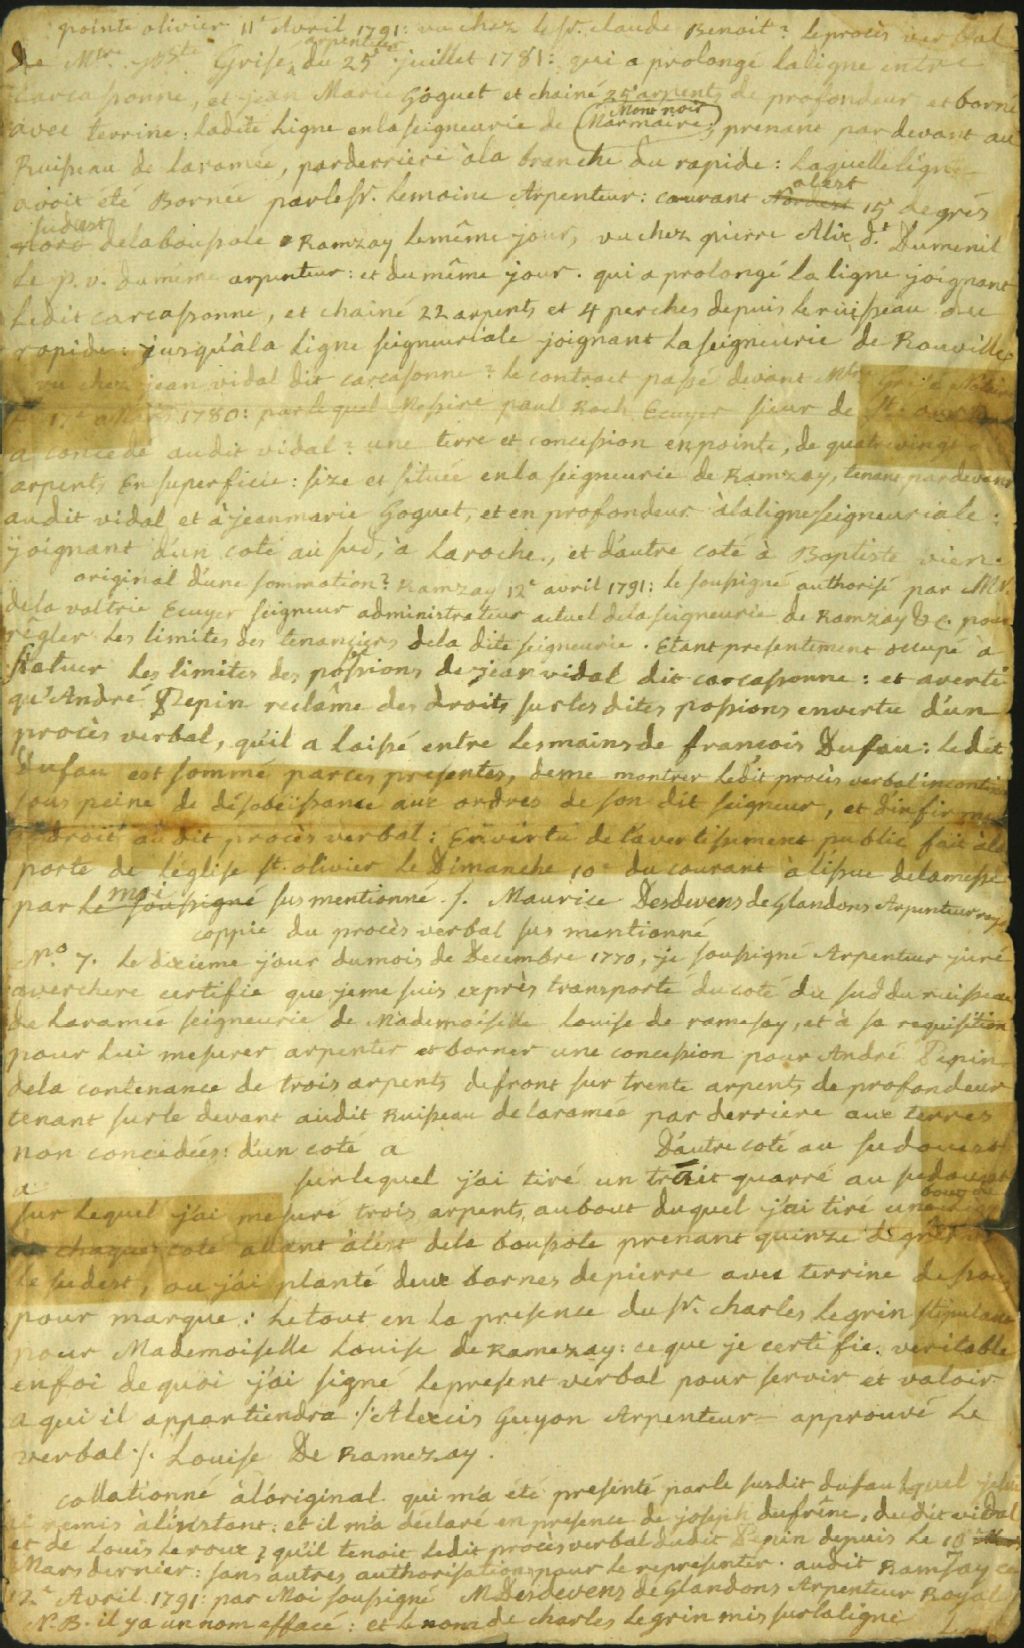 pointe olivier 11e Avril 1791: vu chez le sr. claude Benoit? le procès verbal
de Mtre Grisé arpenteur du 25e juillet 1781: qui a prolongé laligne entre
carcassonne, et jean Marie Goguet et chainé 25 arpents de profondeur et borné
avec terrine: ladite Ligne enlaseigneurie de Mont noir Marmaire; prenant par devant au
Ruisseau de laramée, parderriere àla branche du rapide: Laquelle ligne
avoit été Bornée parlesr. Lemoine Arpenteur: courant Nordest alest 15 degrés
Nord sudest delaboussole Ramzay lemême jour, vu chez pierre Alix dt. Dumenil
Le p. v. dumeme arpenteur: et dumême jour. qui a prolongé la ligne joignant
Ledit carcassonne, et chainé 22 arpents et 4 perches depuis le ruisseau du
rapide: jusqu'àla Ligne seigneuriale joignant Laseigneurie de Rouville
vu chez jean vidal dit carcasonne? le contract passé devant Mtre Grisé
1780: parlequel Messire paul Roch Ecuyer sieur de St. ours
a concédé audit vidal? une terre et concession enpointe, de quatrevingt
arpents En superficie: size et située enla seigneurie de Ramzay, tenant pardevant
audit vidal et à jeanmarie Goguet, et en profondeur àlaligneseigneuriale:
joignant d'un coté au sud, à Laroche, et d'autre coté à Baptiste vien.
original d'une sommation? Ramzay 12e avril 1791: le soussigné authorisé par Mr.
dela valtrie Ecuyer seigneur administrateur actuel delaseigneurie de Ramzay &c. pour
règler Les limites des tenanciers dela dite seigneurie. Etant presentement occupé à
statuer Les limites des possions de jean vidal dit carcassonne: et averti
qu'André Pepin reclâme des droits surles dites possions envertu d'un
procès verbal, qu'il a laissé entre Lesmains de françois Dufau: ledit
Dufau est sommé parces presentes, deme montrer ledit procès verbal incontinent
sous peine de désobéissance aux ordres de son dit seigneur, et d'infirmer
droit audit procès verbal: Envirtu de l'avertissement public fait àla
porte de l'église st. olivier le Dimanche 10e du courant à lissue delamesse
par Le soussigné moi sus mentionné /. Maurice Desdevens de Glandons Arpenteur
coppie du procès verbal sus mentionné
No. 7. Le dixieme jour dumois de Decembre 1770, je soussigné Arpenteur juré
averchere certifie que jeme suis exprès transporté ducoté du sud du ruisseau
de Laramée seigneurie de Mademoiselle Louise de ramesay, et à sa requisition
pour Lui mesurer arpenter et borner une concession pour André Pepin
dela contenance de trois arpents defront sur trente arpents de profondeur
tenant surle devant audit Ruisseau delaramée par derriere aux terres
non concédées: d'un coté a D'autre coté au sudouest
a surlequel j'ai tiré un trait quarré au sudouest
sur Lequel j'ai mesuré trois arpents, aubout duquel j'ai tiré une
chaque coté allant àlest dela boussole prenant quinze degrés
le sudest, ou j'ai planté deux bornes depierre avec terrine dessous
pour marque: Letout en La presence du sr. charles Legrin stipulant
pour Mademoiselle Louise de Ramezay: ce que je certifie veritable
enfoi de quoi j'ai signé Lepresent verbal pour servir et valoir
a qui il appartiendra ./. Alexis Guyon Arpenteur – approuvé Le
verbal ./. Louise De Ramezay.
collationné àl'original qui m'a été presenté parle susdit dufau lequel
remis àlinstant: et il m'a déclaré en presence de joseph dufrêne, dudit vidal
et de Louis Leroux? qu'il tenoit ledit procès verbal dudit Pepin depuis Le 10
Mars dernier: sans autres authorisations pour le representer. audit Ramsay ce
12e Avril 1791: par Moi soussigné MDesdevens de Glandons Arpenteur Royal
N. B. il ya un nom effacé: et le nom de charles Legrin mis surlaligne